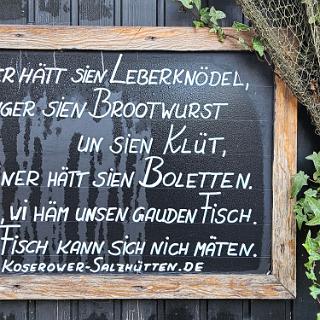 ER HÄTT SIEN LEBERKNÖDEL,
GER SIEN BROOTWURST
UN SIEN KLÜT,
NER HÄTT SIEN BOLETTEN.
, WI HÄM UNSEN GAUDEN FISCH.
FISCH KANN SICH NICH MÄTEN.
KOSEROWER-SALZHÜTTEN.DE